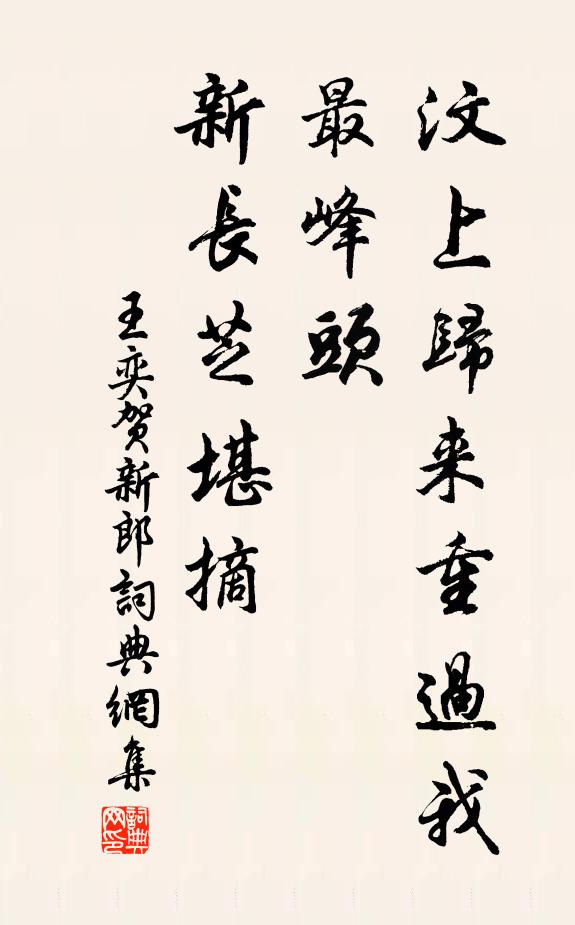 汶上歸来重過我
最峰頭
新長芝堪摘
王奕贺新郎詞典網集
詞典网印